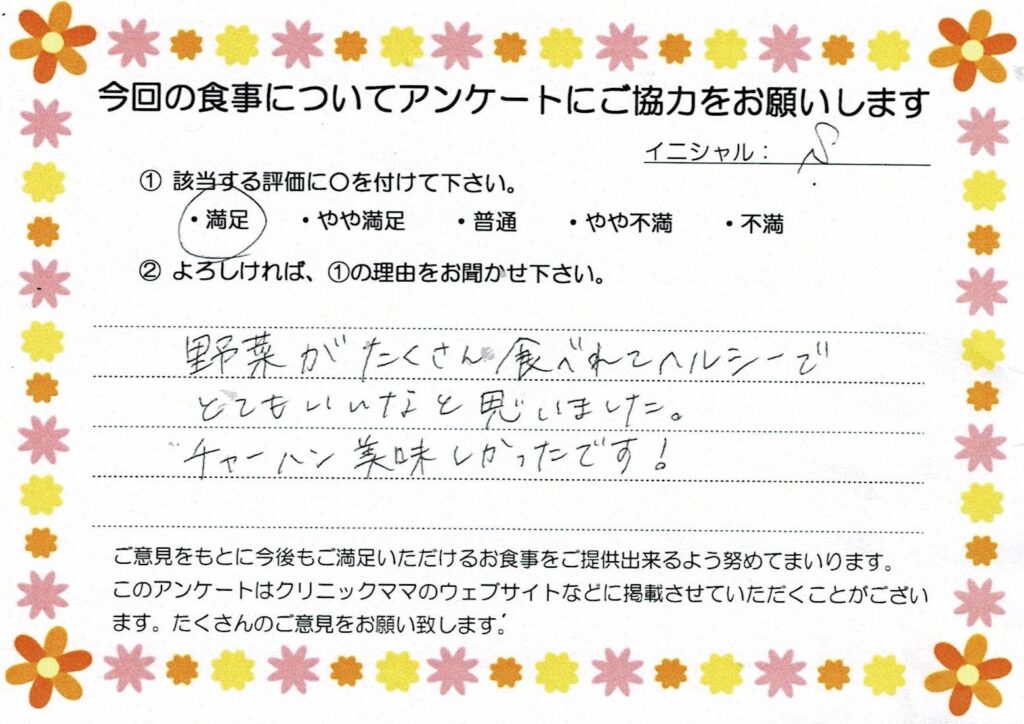 今回の食事についてアンケートにご協力をお願いします
イニシャル： S
① 該当する評価に〇を付けて下さい。
・満足　・やや満足　・普通　・やや不満　・不満
② よろしければ、①の理由をお聞かせ下さい。
野菜がたくさん食べれてヘルシーで
とてもいいなと思いました。
チャーハン美味しかったです！
ご意見をもとに今後もご満足いただけるお食事をご提供出来るよう努めてまいります。
このアンケートはクリニックママのウェブサイトなどに掲載させていただくことがござい
ます。たくさんのご意見をお願い致します。